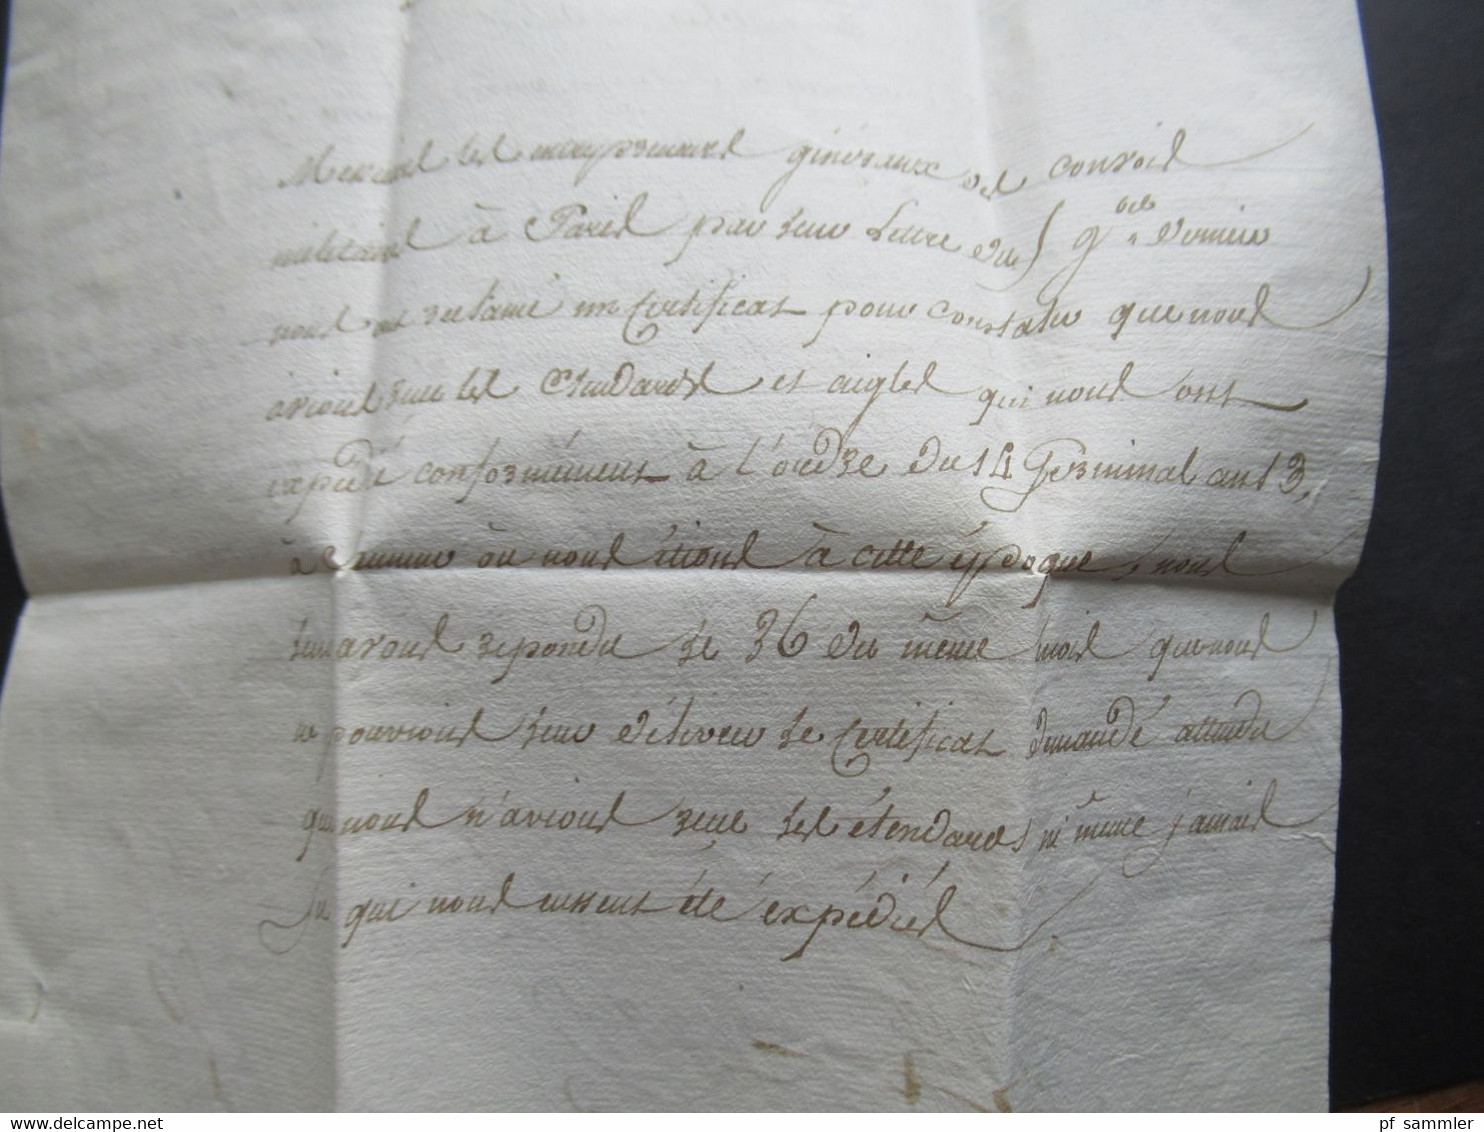 Messieurs les entrepreneurs généraux des convois
militaires à Paris par leur Lettre du 5 9bre dernier
nous ont réclamé un Certificat pour constater que nous
avions reçu les Etendards et aigles qui nous ont
expédié conformément à l'ordre du 14 Germinal an 13,
à où nous étions à cette époque, nous
leur avons répondu le 26 du même mois que nous
ne pouvions leur délivrer le Certificat demandé attendu
que nous n'avions reçu les étendards ni même jamais
su qui nous eussent été expédiés
pf_sammler